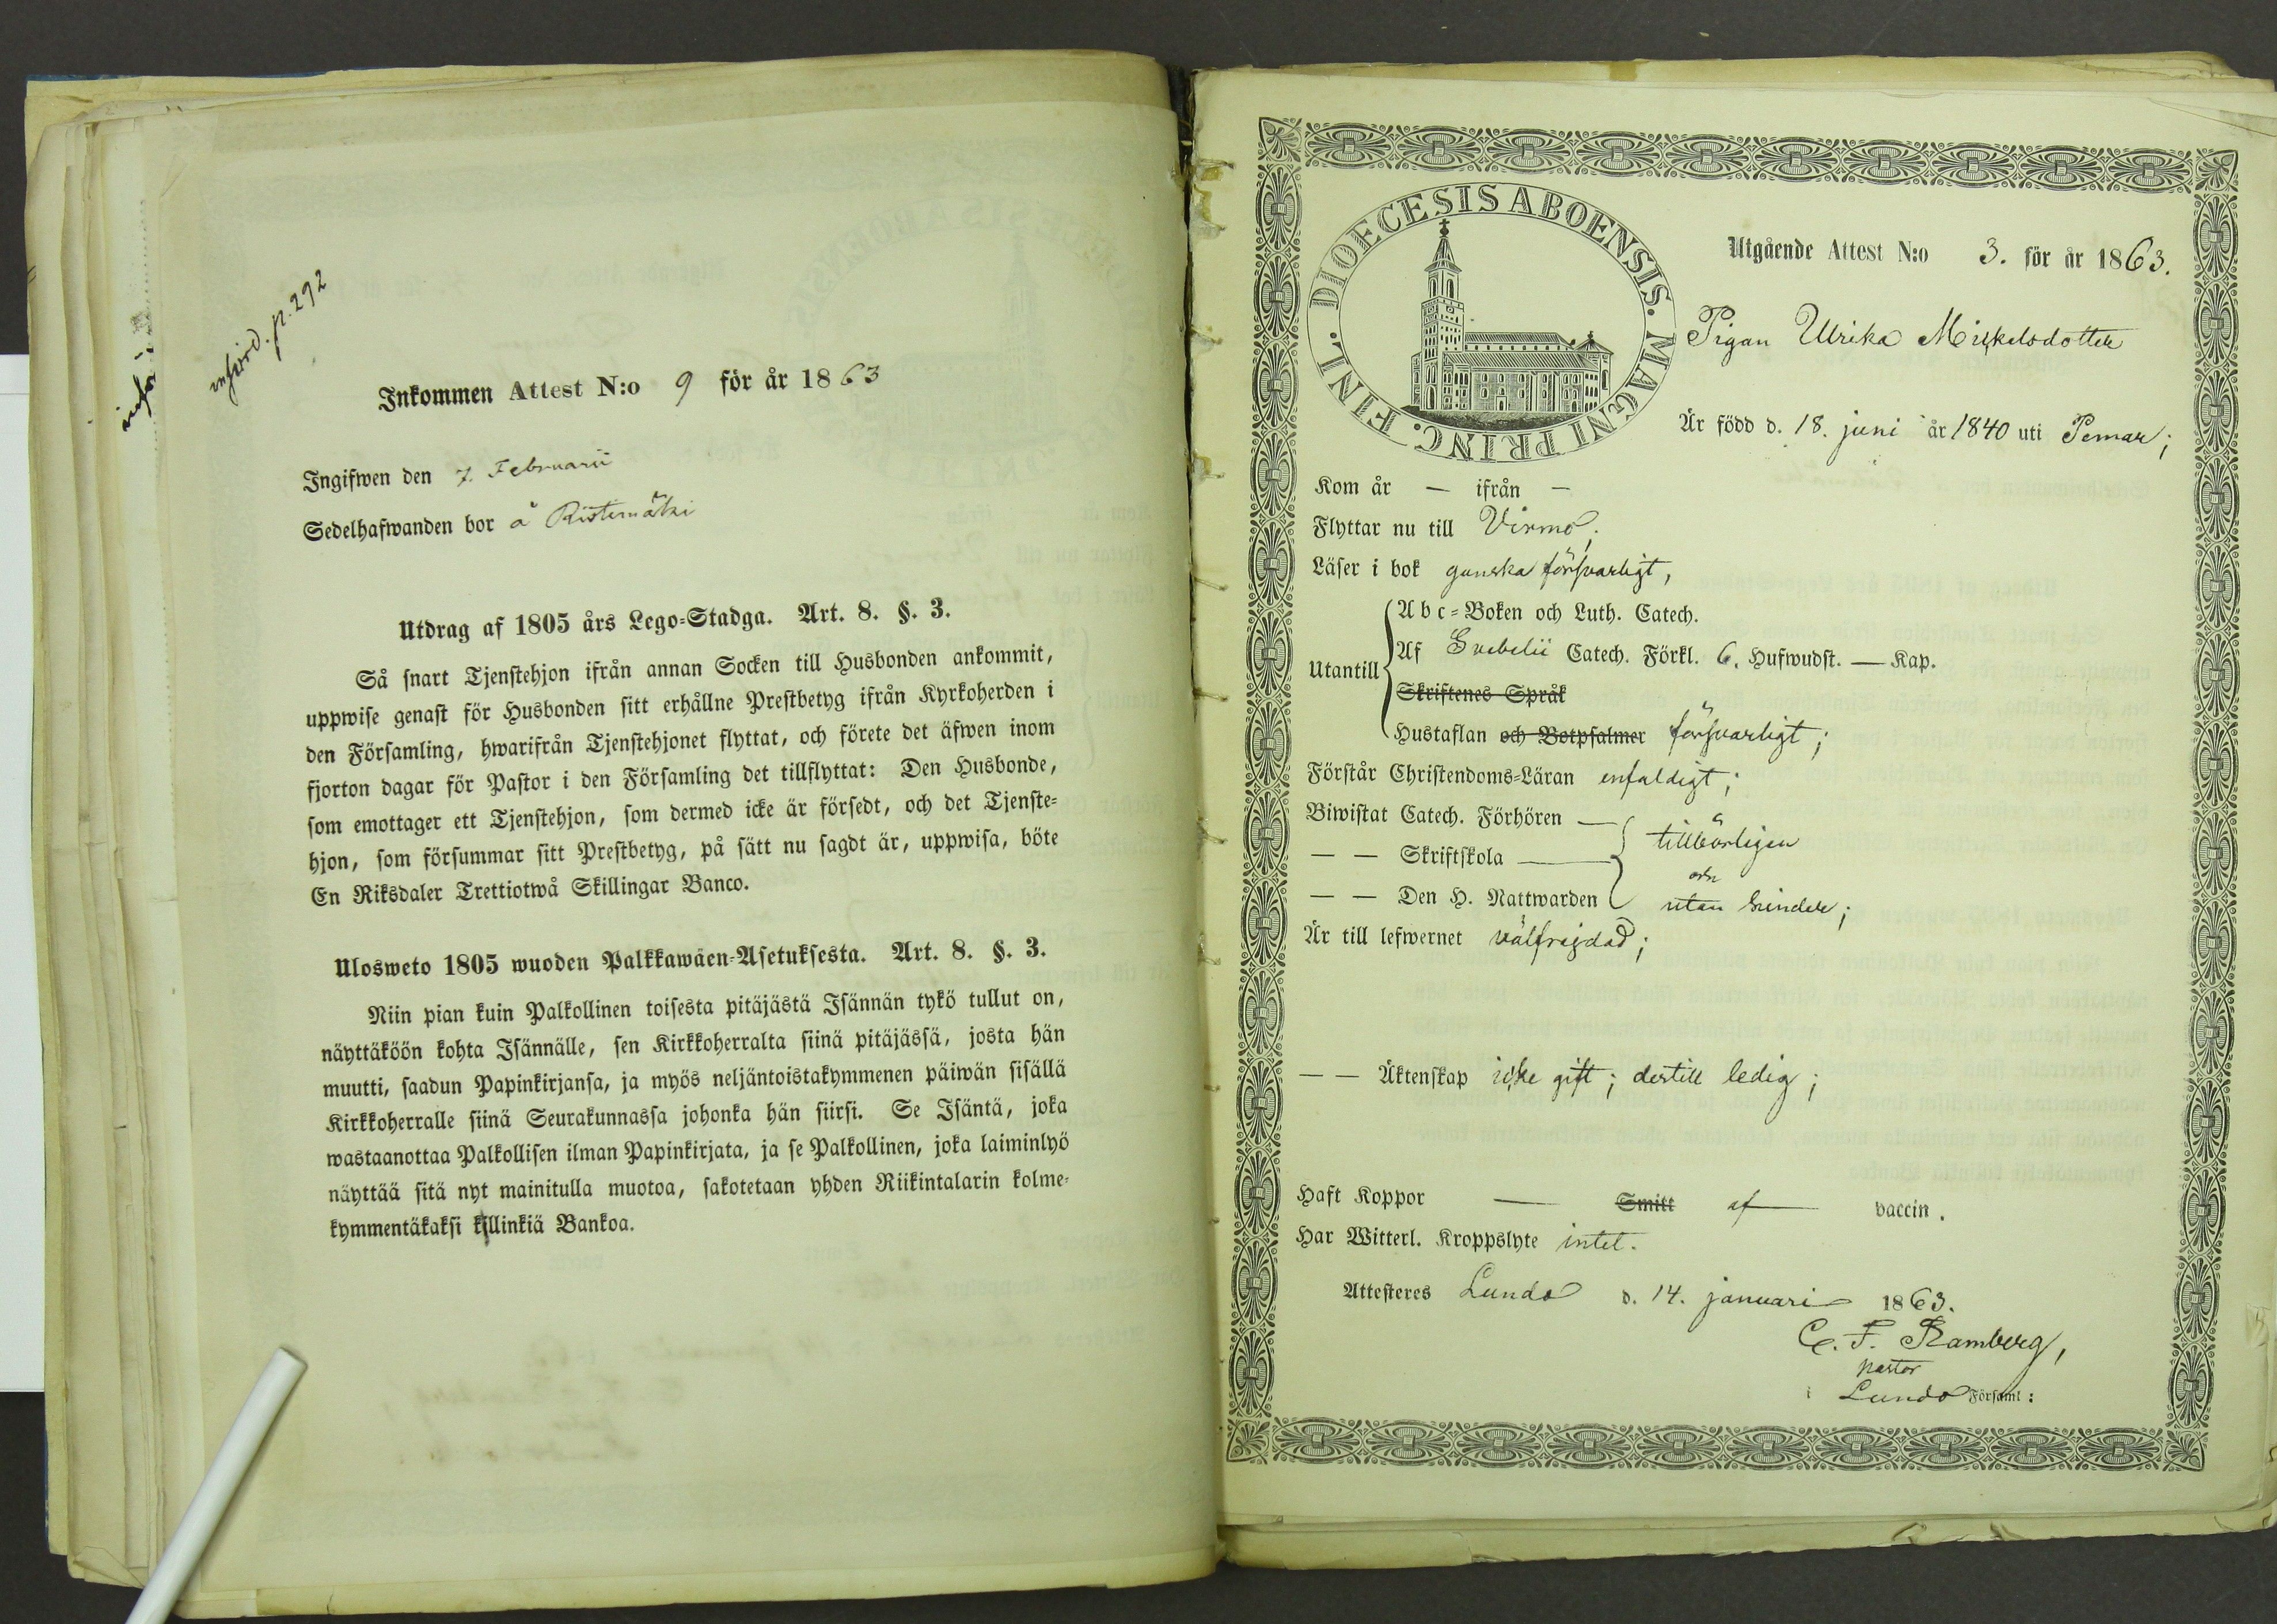 införd. p. 292
införd
Inkommen Attest N:o 9 för år 1863
Ingifwen den 7. Februarii
Sedelhafwanden bor å Ristimäki
Utdrag af 1805 års Lego-Stadga. Art. 8. §. 3.
Så snart Tjenstehjon ifrån annan Socken till Husbonden ankommit,
uppwise genast för Husbonden sitt erhållne Prestbetyg ifrån Kyrkoherden i
den Församling, hwarifrån Tjenstehjonet flyttat, och förete det äfwen inom
fjorton dagar för Pastor i den Församling det tillflyttat: Den Husbonde,
som emottager ett Tjenstehjon, som dermed icke är försedt, och det Tjenste-
hjon, som försummar sitt Prestbetyg, på sätt nu sagdt är, uppwisa, böte
En Riksdaler Trettiotwå Skillingar Banco.
Ulosweto 1805 wuoden Palkkawäen-Asetuksesta. Art. 8. §. 3.
Niin pian kuin Palkollinen toisesta pitäjästä Isännän tykö tullut on,
näyttäköön kohta Isännälle, sen Kirkkoherralta siinä pitäjässä, josta hän
muutti, saadun Papinkirjansa, ja myös neljäntoistakymmenen päiwän sisällä
Kirkkoherralle siinä Seurakunnassa johonka hän siirsi. Se Isäntä, joka
wastaanottaa Palkollisen ilman Papinkirjata, ja se Palkollinen, joka laiminlyö
näyttää sitä nyt mainitulla muotoa, sakotetaan yhden Riikintalarin kolme-
kymmentäkaksi killinkiä Bankoa.
DIOECESIS ABOENSIS. MAGNI PRINC. FINL.
Utgående Attest N:o 3. för år 1863.
Pigan Ulrika Mickelsdotter
Är född d. 18. juni år 1840 uti Pemar;
Kom år — ifrån —
Flyttar nu till Virmo;
Läser i bok ganska försvarligt,
Utantill
Abc-Boken och Luth. Catech.
Af Svebelii Catech. Förkl. 6. Hufwudst. — Kap.
Skriftenes Språk
Hustaflan och Botpsalmer försvarligt;
Förstår Christendoms-Läran enfaldigt;
Biwistat Catech. Förhören — tillbörligen
— — Skriftskola — och
— — Den H. Nattwarden utan hinder;
Är till lefwernet välfrejdad;
— — Äktenskap icke gift; dertill ledig;
Haft Koppor — Smitt af vaccin.
Har Witterl. Kroppslyte intet.
Attesteres Lundo d. 14. januari 1863.
C. F. Ramberg,
Pastor
i Lundo Församl: